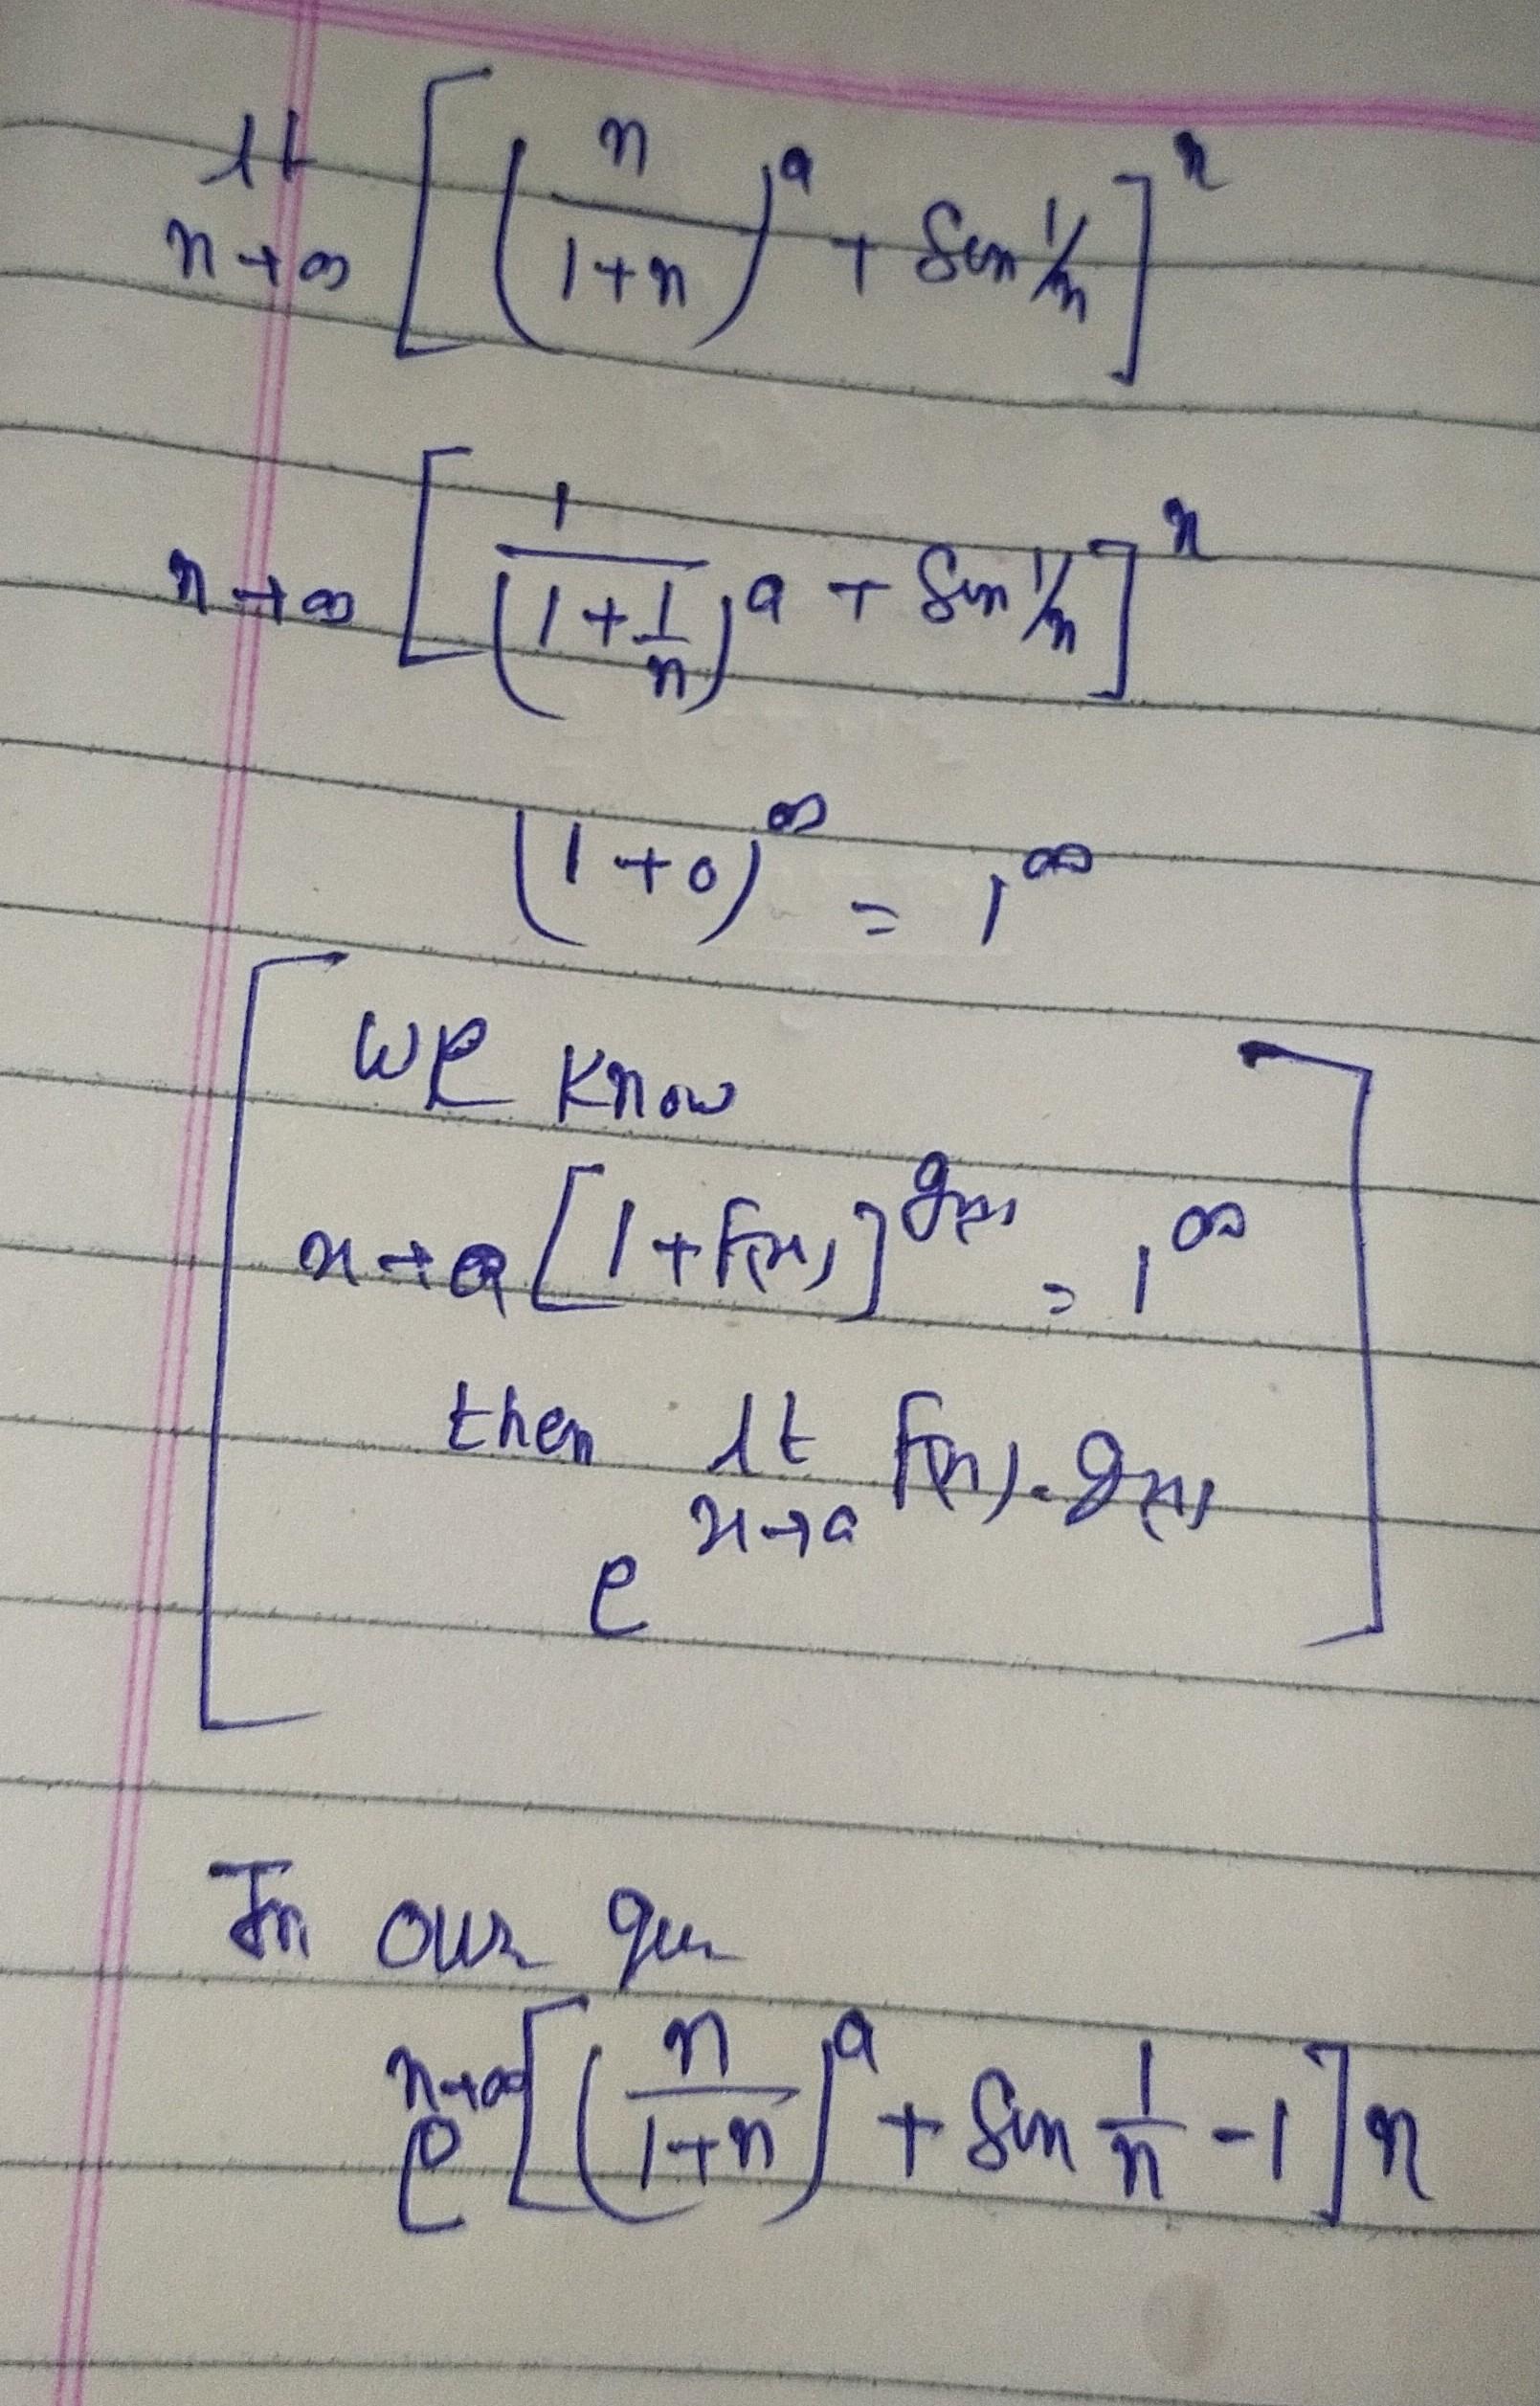 lt n→∞ [(n/(1+n))^a + Sin 1/n]^n
n→∞ [1/(1+1/n)^a + Sin 1/n]^n
(1+0)^∞ = 1^∞
We know
x→a [1+f(x)]^g(x) = 1^∞
then lt x→a f(x).g(x)
e
In our que
e^ n→∞ [(n/(1+n))^a + Sin 1/n -1] n